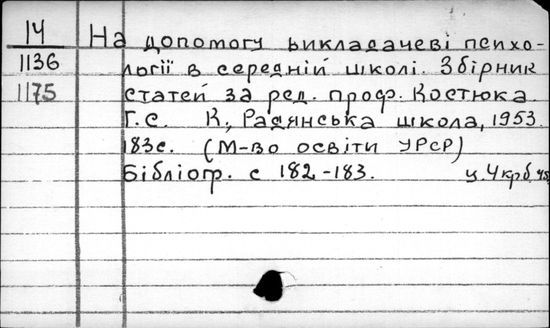 14
1136
1175
На допомогу викладачеві психо-
логії в середній школі. Збірник
статей за ред. проф. Костюка
Г.С. К., Радянська школа, 1953.
183с. (М-во освіти УРСР)
Бібліогр. с 182-183. ц. 4крб. 45